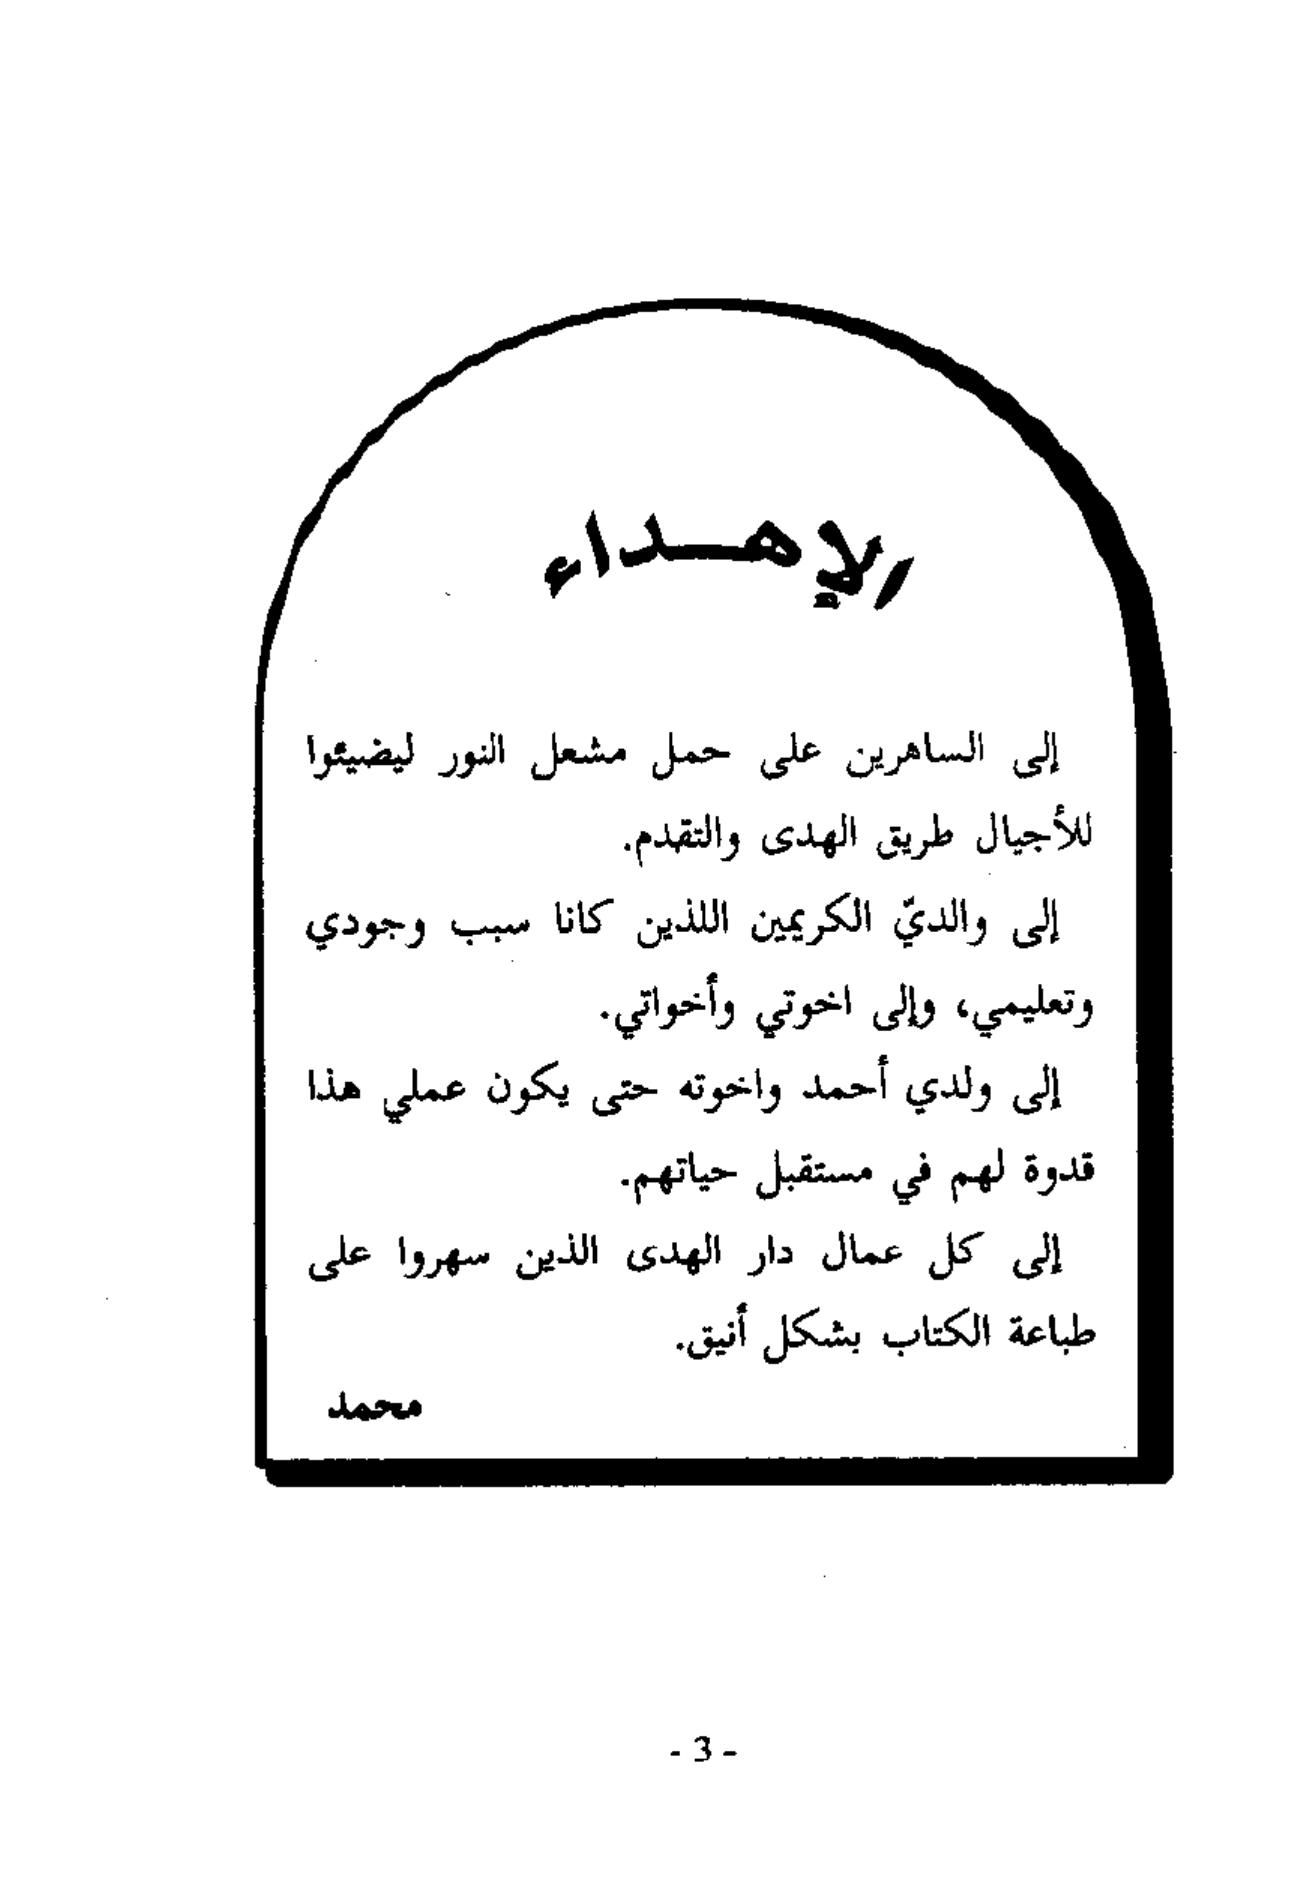 الإهـداء
إلى الساهرين على حمل مشعل النور ليضيئوا
للأجيال طريق الهدى والتقدم.
إلى والديّ الكريمين اللذين كانا سبب وجودي
وتعليمي، وإلى اخوتي وأخواتي.
إلى ولدي أحمد واخوته حتى يكون عملي هذا
قدوة لهم في مستقبل حياتهم.
إلى كل عمال دار الهدى الذين سهروا على
طباعة الكتاب بشكل أنيق.
محمد
- 3 -